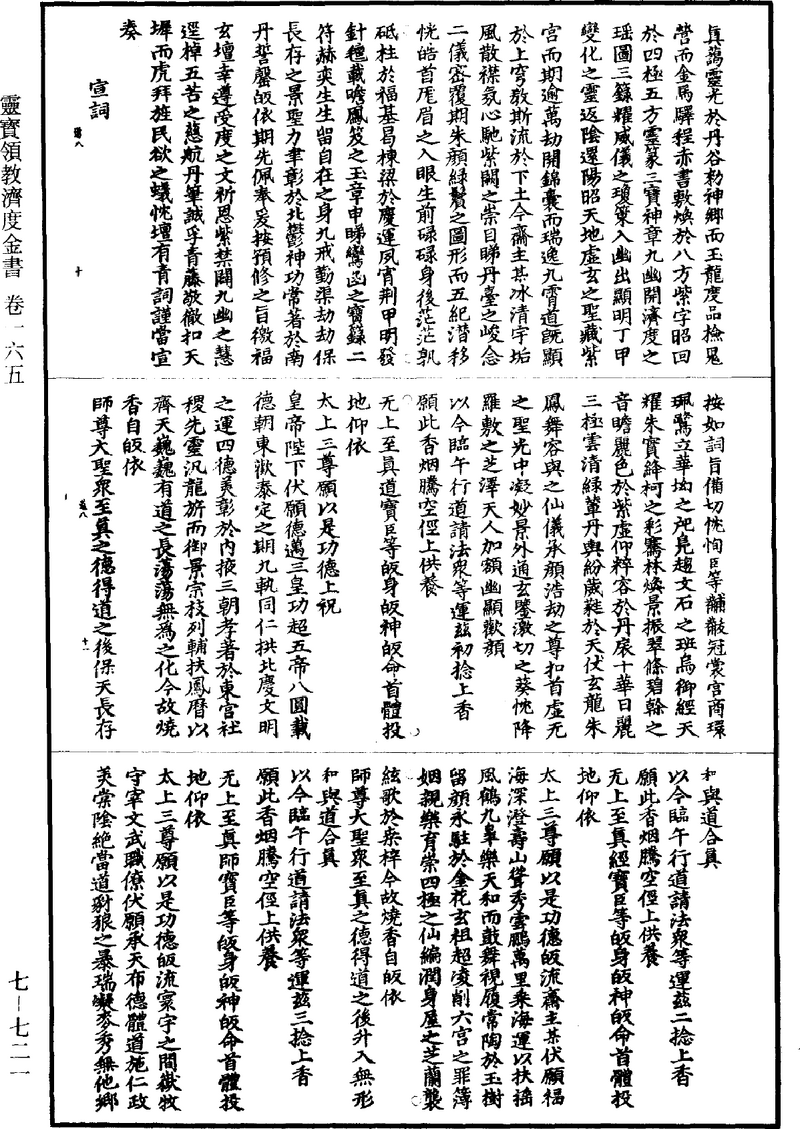 真藹靈光於丹谷勑神鄉而玉龍度品檢鬼
營而金馬驛程赤書敷煥於八方紫字昭回
於四極五方靈篆三寶神章九幽開濟度之
瑶圖三籙耀威儀之瓊蘂入幽出顯明丁甲
變化之靈返陰還陽昭天地虛玄之聖藏紫
宮而期逾萬劫開錦囊而瑞逸九霄道旣顯
於上穹敷斯流於下土今齋主某冰清宇垢
風散襟氛心馳紫闕之崇目睇丹臺之峻念
二儀密覆期朱顏綠鬢之圖形而五紀潛移
恍皓首厖眉之入眼生前碌碌身後茫茫孰
砥柱於福基曷棟梁於慶運夙宵荆甲明發
針氊載瞻鳳笈之玉章申睇鸞函之寶籙二
符赫奕生生留自在之身九戒勤渠劫劫保
長存之景聖力聿彰於北鬱神功常著於南
丹誓罄皈依期先佩奉爰按預修之旨徼福
玄壇幸遵受度之文祈恩紫禁闢九幽之慧
逕棹五苦之慈航丹筆誠孚青藤敬徹扣天
墀而虎拜旌民欲之蟻忱壇有青詞謹當宣
奏
宣詞
按如詞旨備切忱恂臣等黼黻冠裳宮商環
珮鷺立華坳之祀鳧趨文石之班烏御經天
耀朱實絳柯之彩鶱林煥景振翠條碧翰之
音瞻麗色於紫虛仰粹容於丹扆十華日麗
三極雲清綠軰丹輿紛葳蕤於天仗玄龍朱
鳳舞容與之仙儀承顏浩劫之尊扣首虛无
之聖光中凝妙景外通玄鑒激切之葵忱降
羅敷之芝澤天人加額幽顯歡顏
以今臨午行道請法衆等運茲初捻上香
願此香烟騰空徑上供養
无上至真道寶臣等皈身皈神皈命首體投
地仰依
太上三尊願以是功德上祝
皇帝陛下伏願德邁三皇功超五帝八圓載
德朝東歡泰定之期九執同仁拱北慶文明
之運四德美彰於內掖三朝孝著於東宮社
稷先靈汎龍旂而御景宗枝列輔扶鳳曆以
齊天巍巍有道之長蕩蕩無爲之化今故燒
香自皈依
師尊大聖衆至真之德得道之後保天長存
和與道合真
以今臨午行道請法衆等運茲二捻上香
願此香烟騰空徑上供養
无上至真經寶臣等皈身皈神皈命首體投
地仰依
太上三尊願以是功德皈流齋主某伏願福
海深澄壽山聳秀雲鵬萬里乘海運以扶搖
風鶴九皋樂天和而鼓舞視履常陶於玉樹
留顏永駐於金花玄祖超凌削六宮之罪簿
姻親樂育崇四極之仙編潤身屋之芝蘭襲
絃歌於桒梓今故燒香自皈依
師尊大聖衆至真之德得道之後升入無形
和與道合真
以今臨午行道請法衆等運茲三捻上香
願此香烟騰空徑上供養
无上至真師寶臣等皈身皈神皈命首體投
地仰依
太上三尊願以是功德皈流寰宇之間嶽牧
守宰文武職僚伏願承天布德體道施仁政
美棠陰絕當道豺狼之暴瑞凝麥秀無他鄉
靈寶領教濟度金書 卷一六五
七－七二一